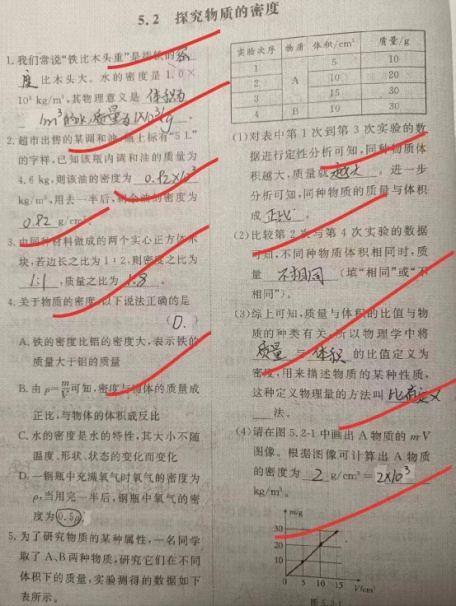 5.2 探究物质的密度
1.我们常说"铁比木头重"是指铁的密
度 比木头大。水的密度是1.0×
10³ kg/m³,其物理意义是 体积为
1m³的水质量为1×10³kg。
2.超市出售的某调和油,瓶上标有"5 L"
的字样,已知该瓶内调和油的质量为
4.6 kg,则该油的密度为 0.92×10³
kg/m³,用去一半后,剩余油的密度为
0.92 g/cm³。
3.由同种材料做成的两个实心正方体木
块,若边长之比为1∶2,则密度之比为
1:1,质量之比为 1:8。
4.关于物质的密度,以下说法正确的是
(D.)
A.铁的密度比铝的密度大,表示铁的
质量大于铝的质量
B.由ρ=m/V可知,密度与物体的质量成
正比,与物体的体积成反比
C.水的密度是水的特性,其大小不随
温度、形状、状态的变化而变化
D.一钢瓶中充满氧气时氧气的密度为
ρ,当用完一半后,钢瓶中氧气的密
度为0.5ρ
5.为了研究物质的某种属性,一名同学
取了A、B两种物质,研究它们在不同
体积下的质量,实验测得的数据如下
表所示。
实验次序 物质 体积/cm³ 质量/g
1 A 5 10
2 10 20
3 15 30
4 B 10 30
(1)对表中第1次到第3次实验的数
据进行定性分析可知,同种物质体
积越大,质量就 越大 。进一步
分析可知,同种物质的质量与体积
成 正比 。
(2)比较第2次与第4次实验的数据
可知,不同种物质体积相同时,质
量 不相同 (填"相同"或"不
相同")。
(3)综上可知,质量与体积的比值与物
质的种类有关,所以物理学中将
质量 与 体积 的比值定义为
密度,用来描述物质的某种性质,
这种定义物理量的方法叫 比值定义
法。
(4)请在图5.2-1中画出A物质的m-V
图像。根据图像可计算出A物质
的密度为 2 g/cm³= 2×10³
kg/m³。
m/g
30
20
10
0 5 10 15 V/cm³
图5.2-1